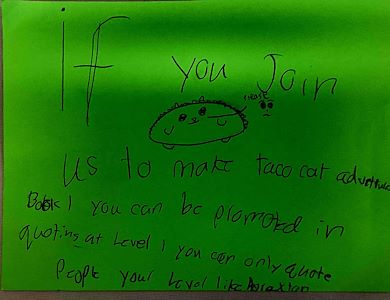 If
you Join
please
us to make taco cat adventure
Book 1 you can be promoted in
quoting at Level 1 you can only quote
People your Level like